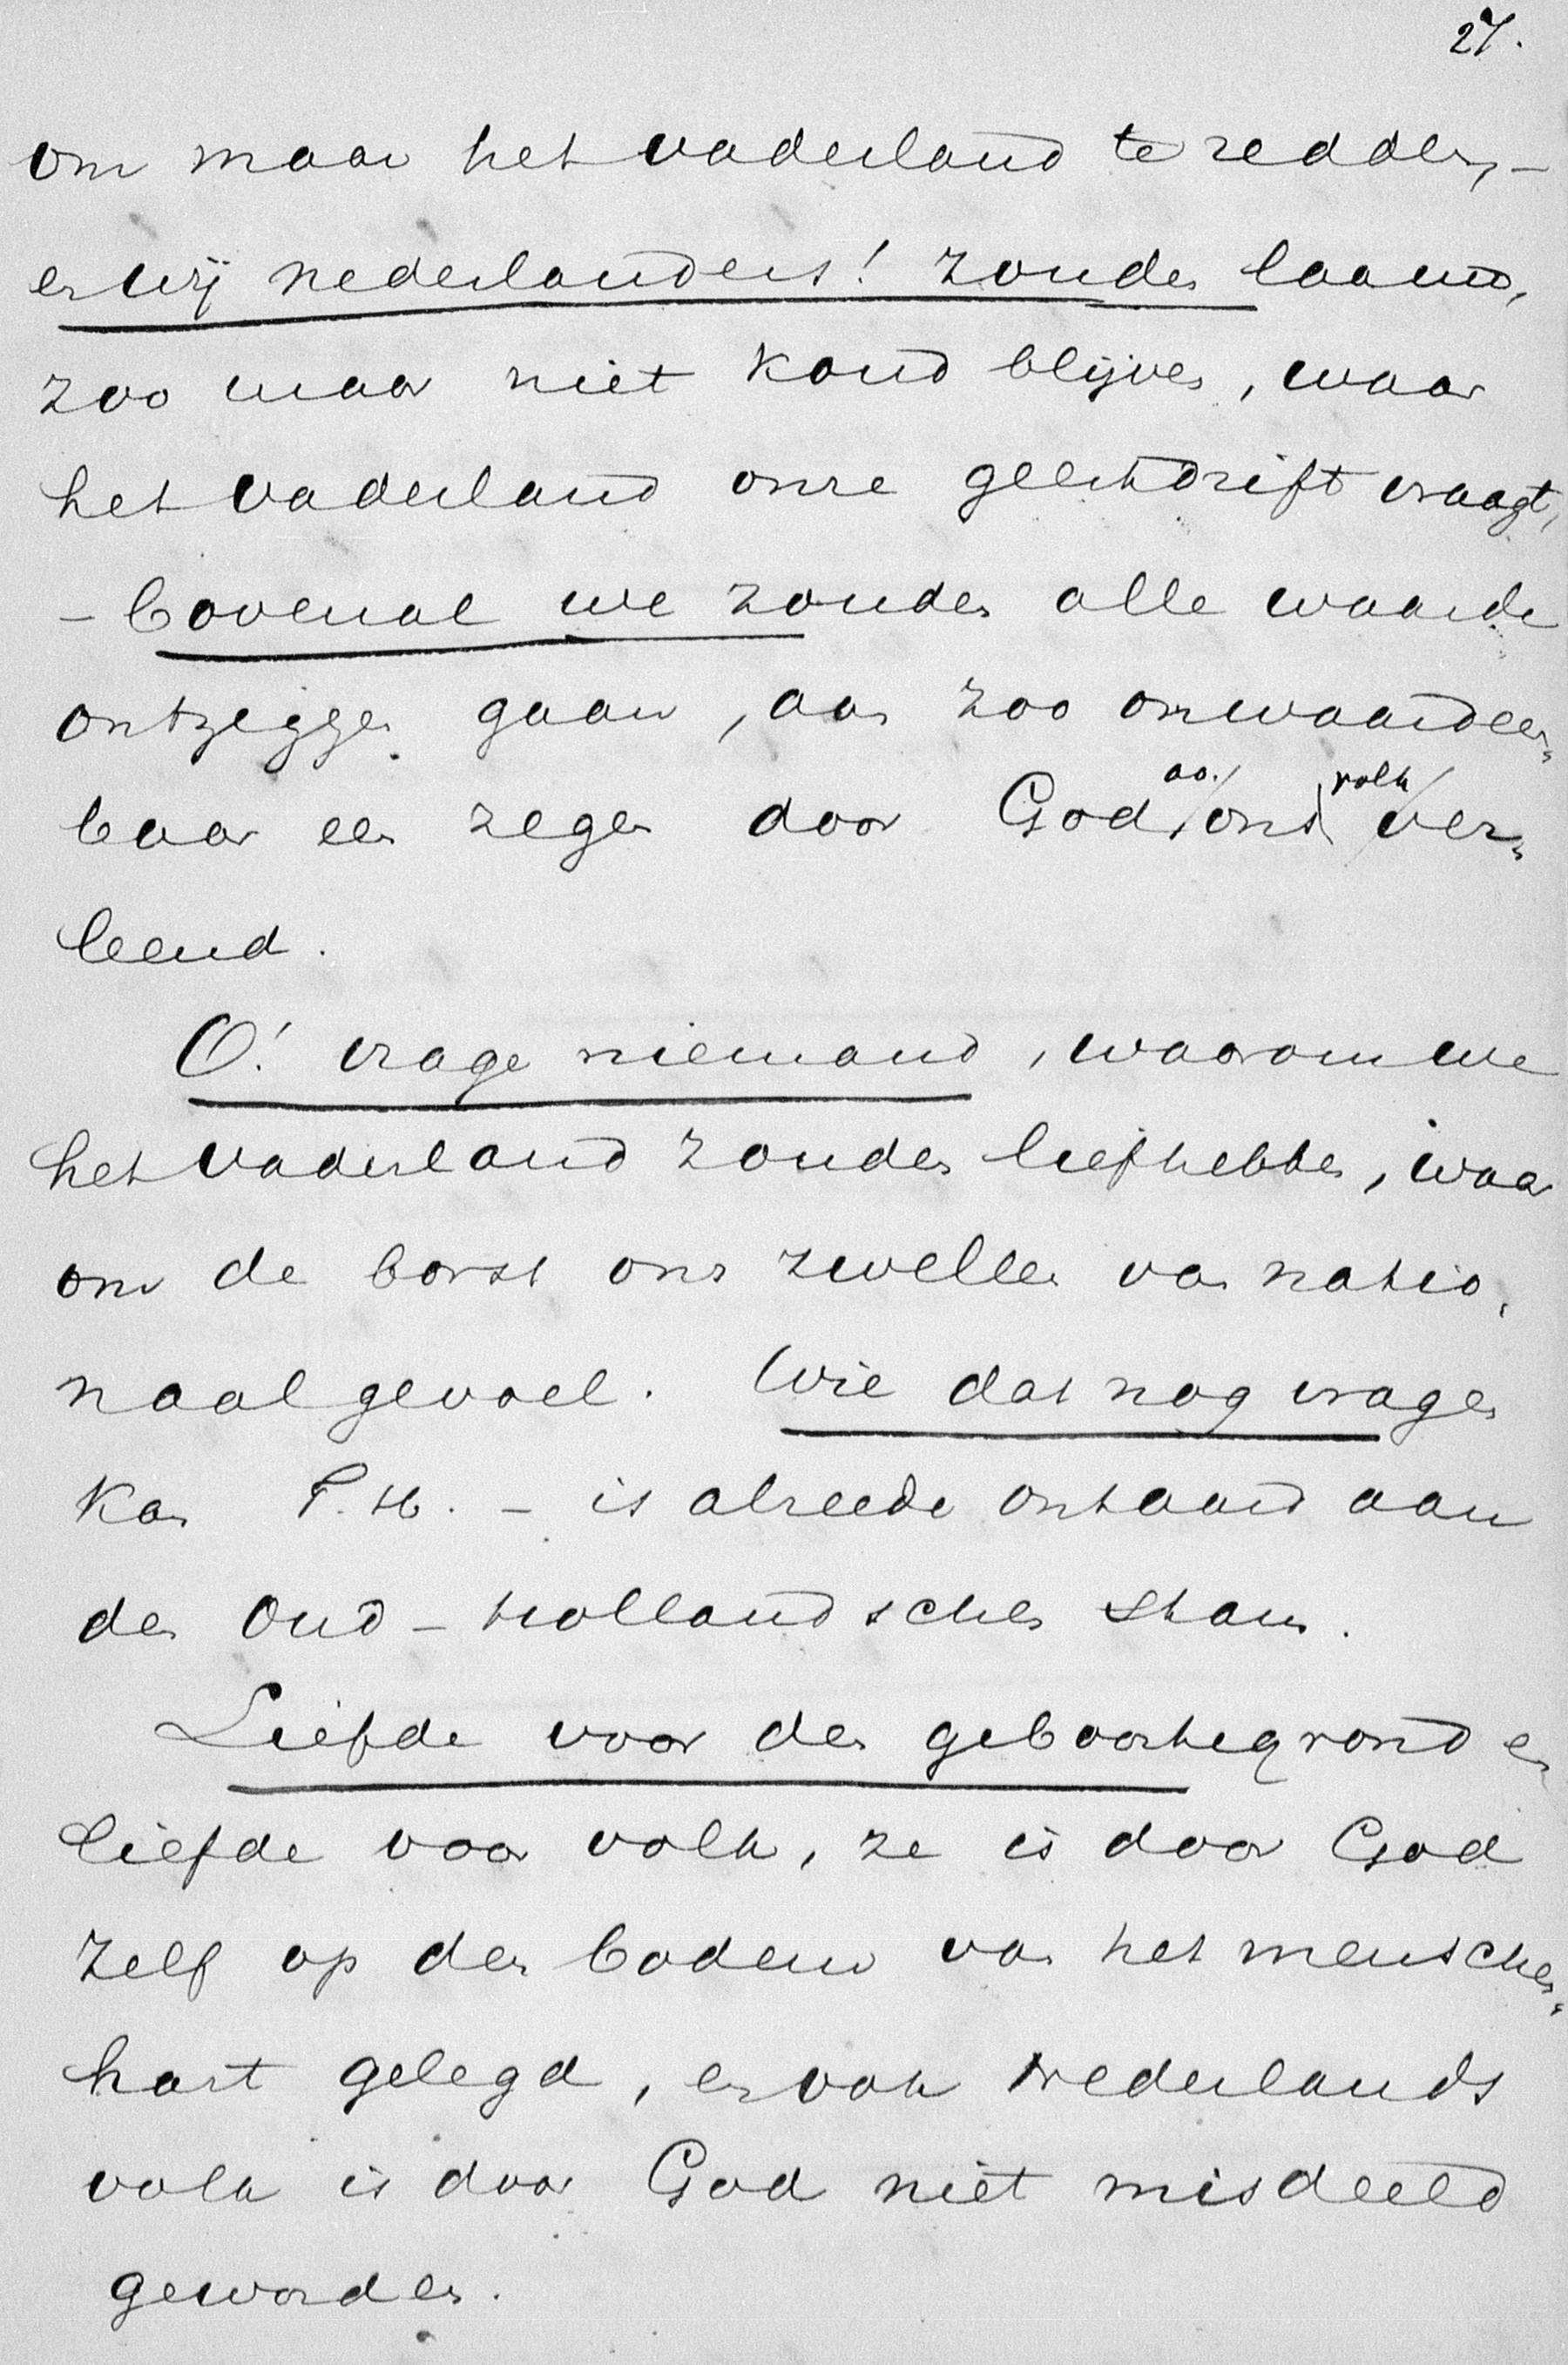 27.
om maar het vaderland te redden, –
en wij nederlanders! zouden laauw,
zoo maar niet koud blijven, waar
het vaderland onze geestdrift vraagt,
– bovenal we zouden alle waarde
ontzeggen gaan, aan zoo onwaardeer=
baar een zegen door God aan ons volk ver=
leend.
O! vrage niemand, waarom we
het vaderland zouden liefhebben, waar
om de borst ons zwellen van natio,
naal gevoel. Wie dat nog vragen
kan T. H. – is alreede ontaard aan
den Oud-Hollandschen stam.
Liefde voor den geboortegrond en
liefde voor volk, ze is door God
zelf op den bodem van het menschen=
hart gelegd, en ook Nederlands
volk is door God niet misdeeld
geworden.